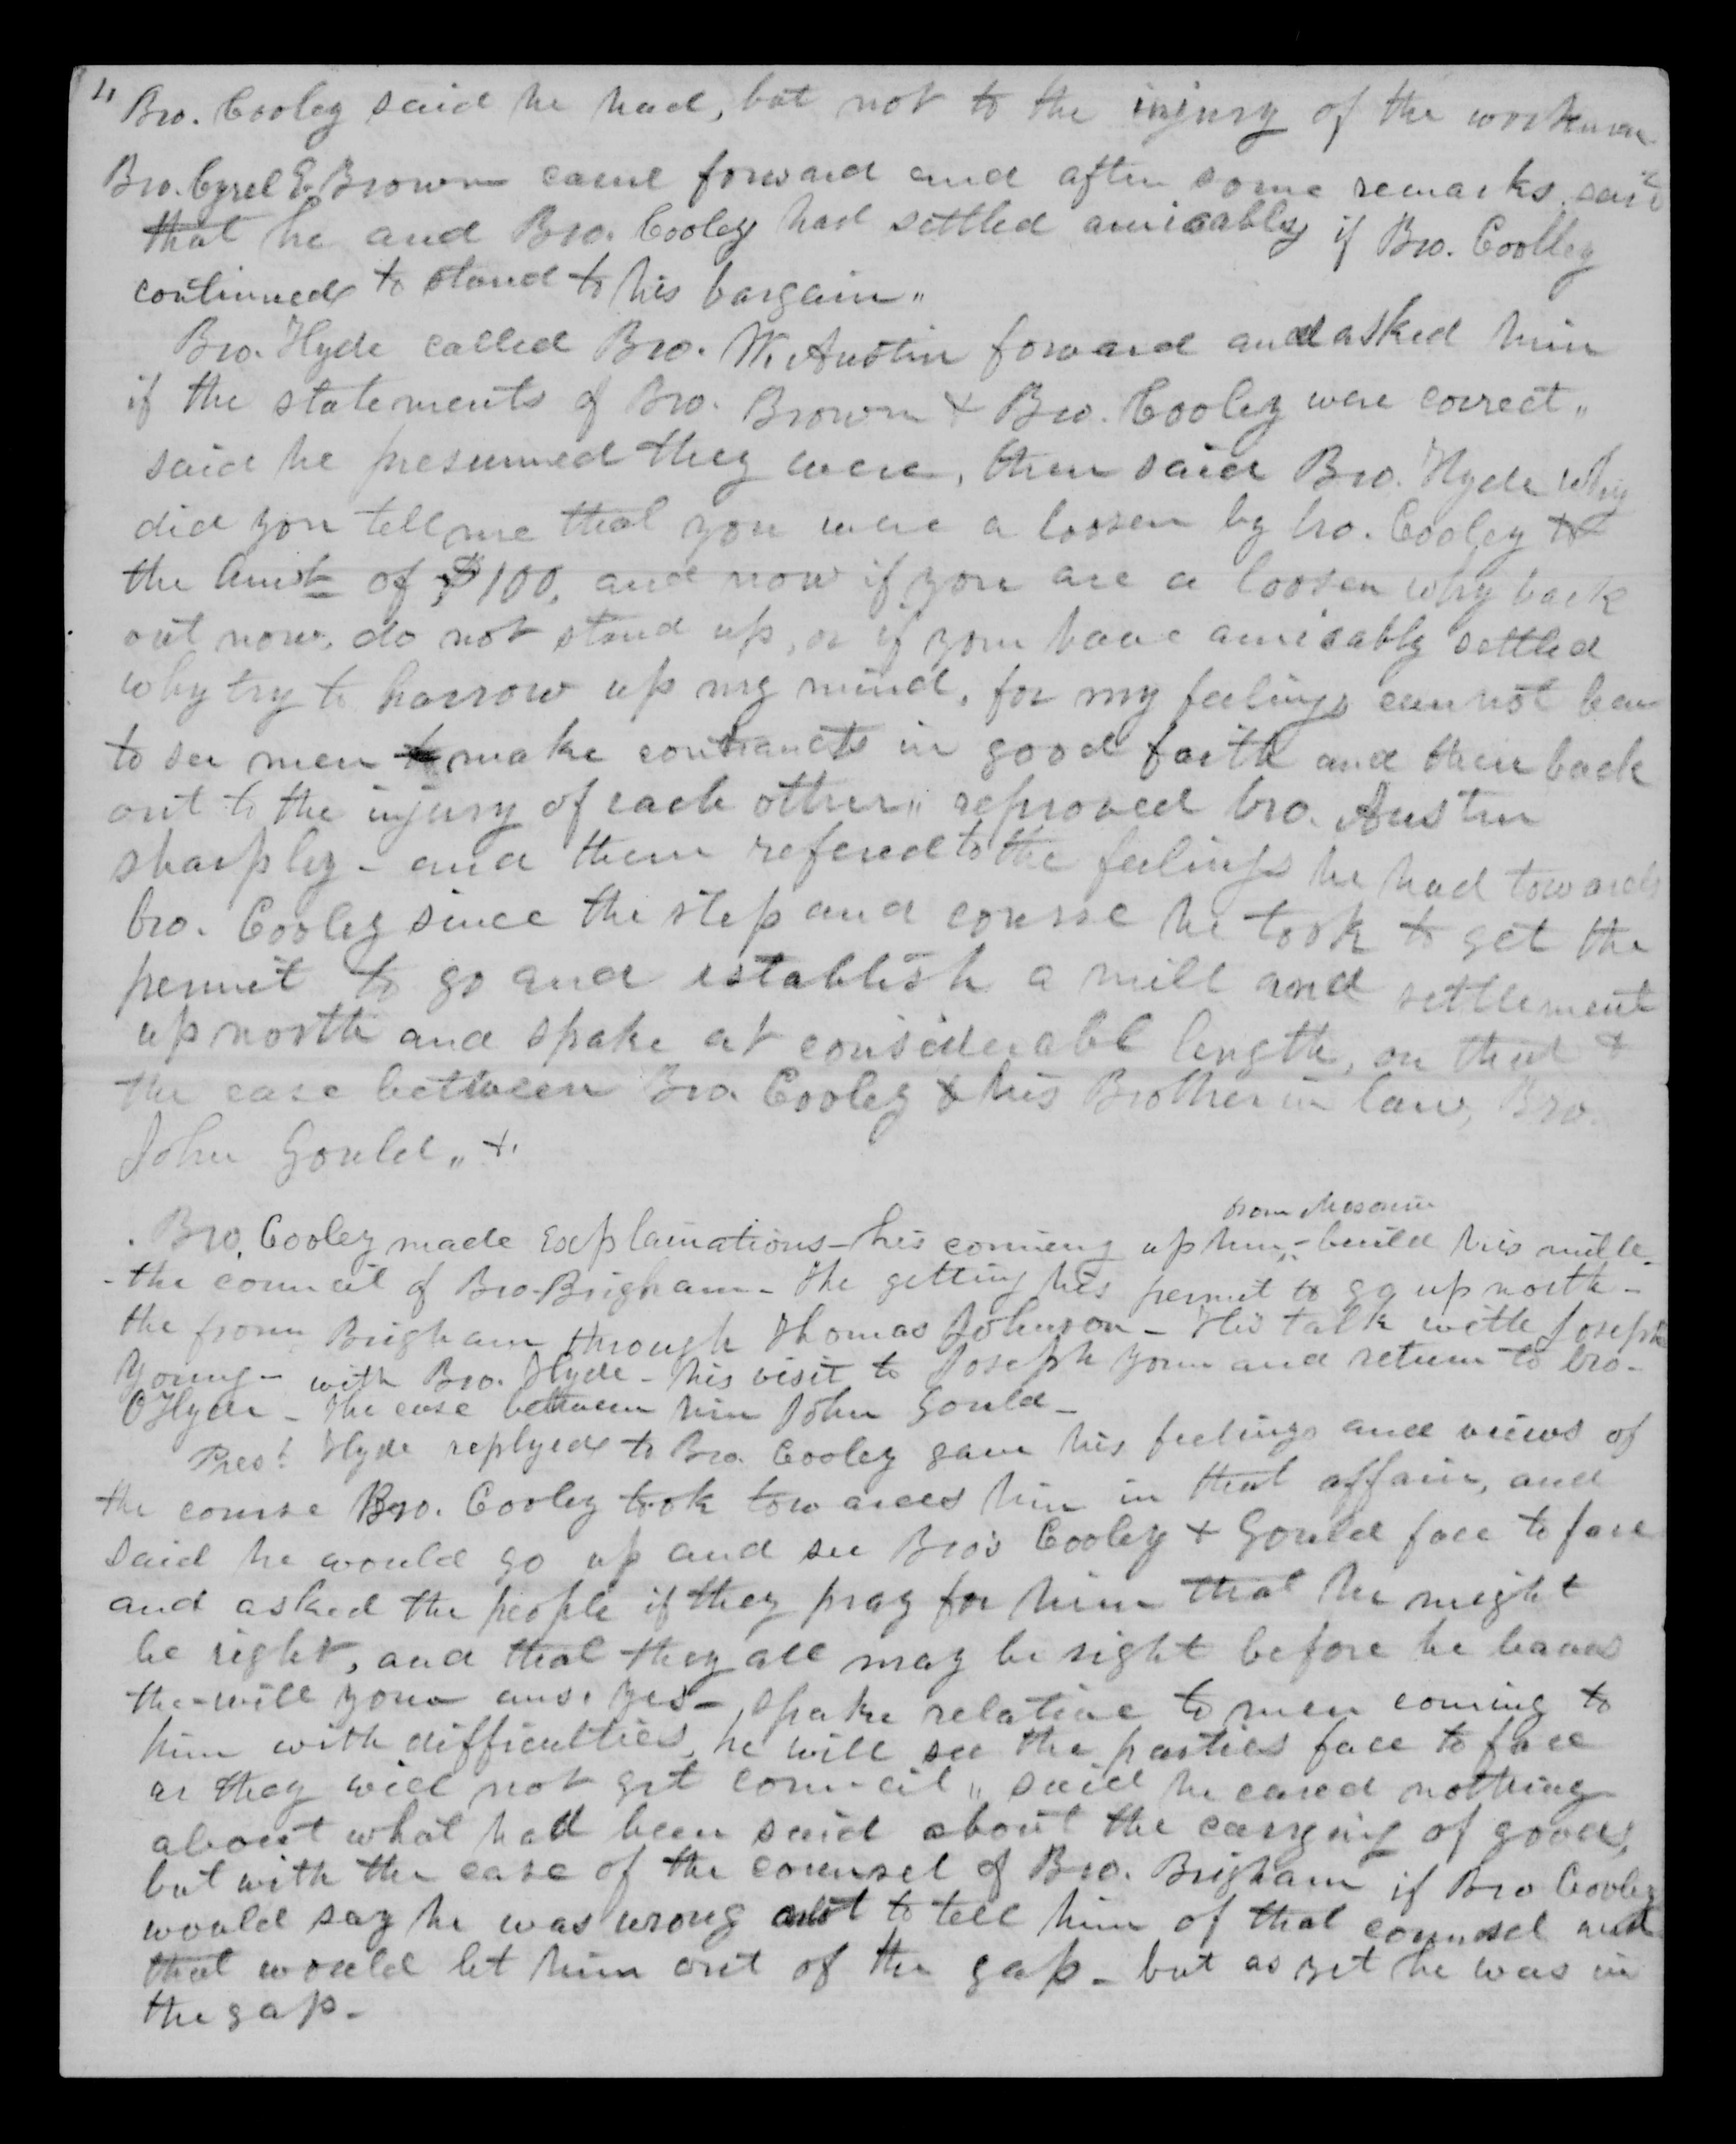 4
Bro. Cooley said he had, but not to the injury of the workman
Bro. Cyrel E. Brown came forward and after some remarks said
that he and Bro. Cooley had settled amicably if Bro. Coolley
continued to stand to his bargain "
Bro. Hyde called Bro. W. Austin forward and asked him
if the statements of Bro. Brown & Bro. Cooley were correct "
said he presumed they were, then said Bro. Hyde why
did you tell me that you were a looser by bro. Cooley to
the Amt of $100, and now if you are a looser why back
out now, do not stand up, or if your have amicably settled
why try to harrow up my mind, for my feelings cannot bear
to see men make contracts in good faith and then back
out to the injury of each other " reproved bro. Austin
sharpley - and then refered to the feelings he had towards
bro. Cooley since the step and course he took to get the
permit to go and establish a mill and settlement
up north and spake at considerabl length, on that &
the case between Bro. Cooley & his Brother in law, Bro.
John Gould " &.
from
Bro. Cooley made Explainations - his comeing up - build his mille -
- the council of Bro. Brigham - The getting his permit to go up north -
the from Brigham through Thomas Johnson - His talk with Joseph
Young - with Bro. Hyde - his visit to Joseph Youn and return to bro -
O Hyde - the case between him John Gould -
Prest Hyde replyed to Bro. Cooley gave his feelings and views of
the course Bro. Cooley took towards him in that affair, and
said he would go up and see Bro's Cooley & Gould face to face
and asked the people if they pray for him that he might
be right, and that they all may be right before he leaves
the - will your ans. yes - Spake relative to men coming to
him with difficulties, he will see the parties face to face
or they will not get council " said he cared nothing
about what had been said about the carrying of goods,
but with the case of the counsel of Bro. Brigham if Bro Cooley
would say he was wrong not to tell him of that counsel and
that would let him out of the gap - but as yet he was in
the gap -